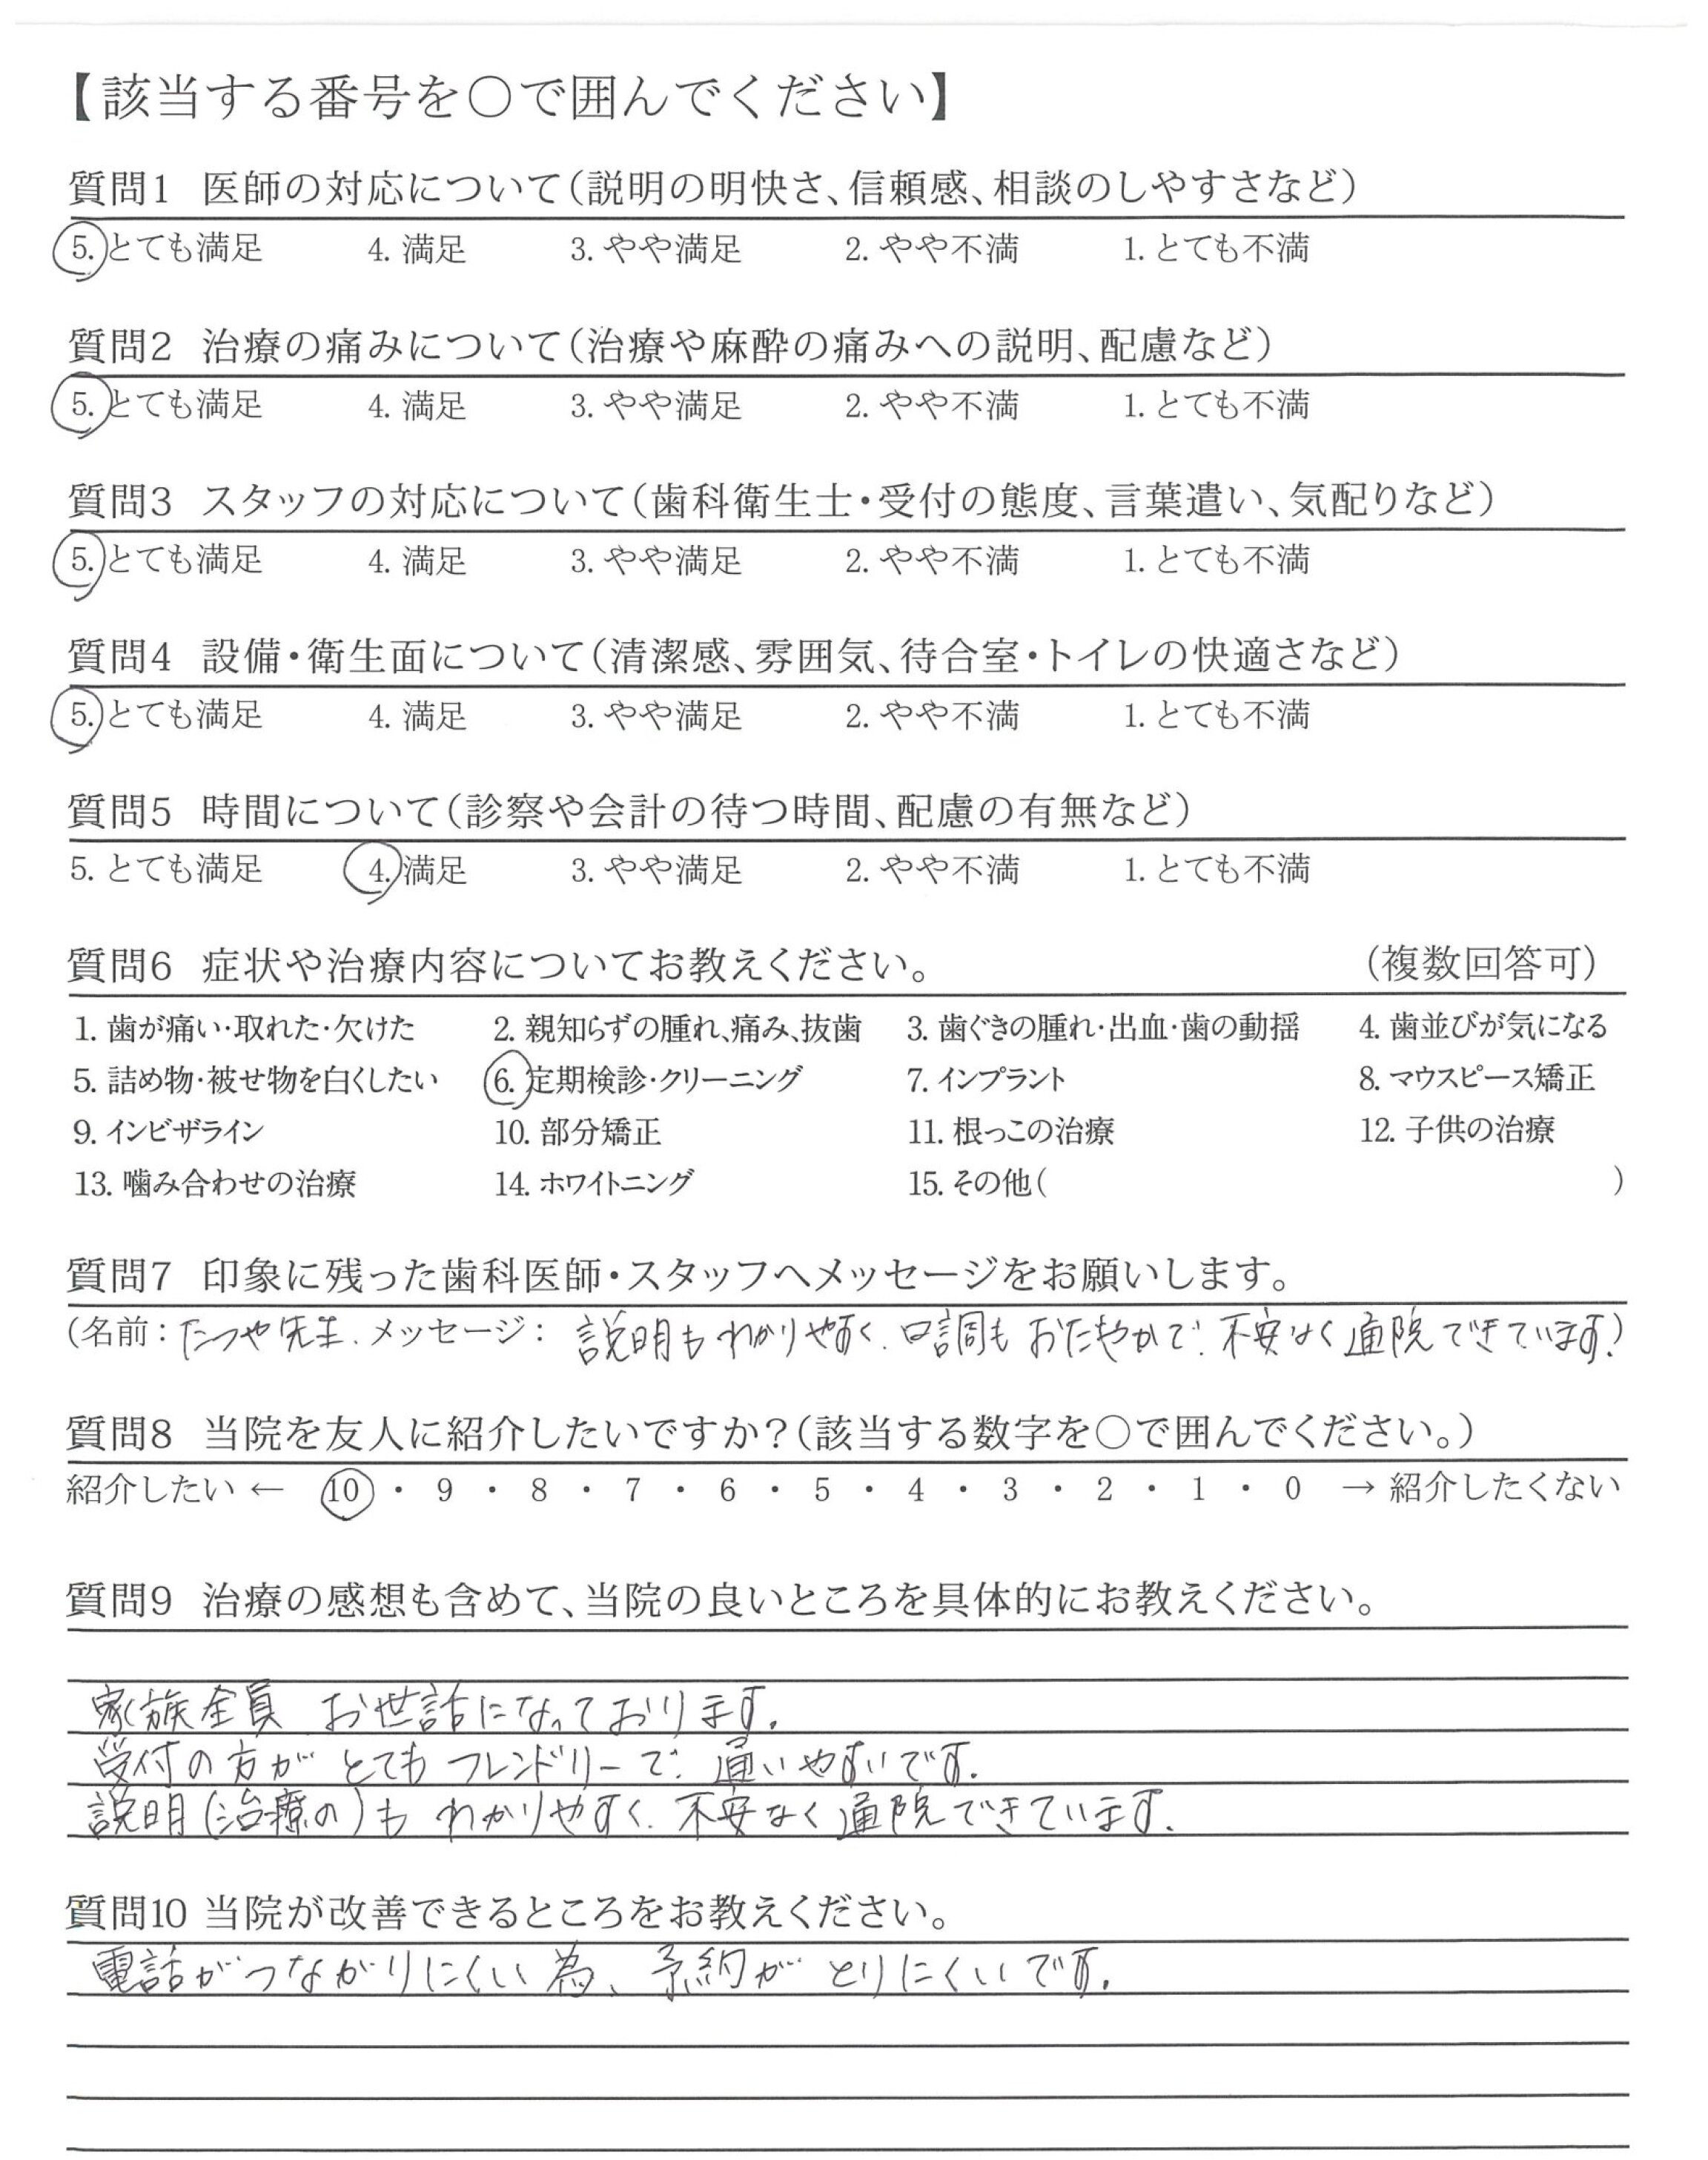 【該当する番号を○で囲んでください】
質問1 医師の対応について(説明の明快さ、信頼感、相談のしやすさなど)
5. とても満足 4. 満足 3. やや満足 2. やや不満 1. とても不満
質問2 治療の痛みについて(治療や麻酔の痛みへの説明、配慮など)
5. とても満足 4. 満足 3. やや満足 2. やや不満 1. とても不満
質問3 スタッフの対応について(歯科衛生士・受付の態度、言葉遣い、気配りなど)
5. とても満足 4. 満足 3. やや満足 2. やや不満 1. とても不満
質問4 設備・衛生面について(清潔感、雰囲気、待合室・トイレの快適さなど)
5. とても満足 4. 満足 3. やや満足 2. やや不満 1. とても不満
質問5 時間について(診察や会計の待つ時間、配慮の有無など)
5. とても満足 4. 満足 3. やや満足 2. やや不満 1. とても不満
質問6 症状や治療内容についてお教えください。 (複数回答可)
1. 歯が痛い・取れた・欠けた 2. 親知らずの腫れ、痛み、抜歯 3. 歯ぐきの腫れ・出血・歯の動揺 4. 歯並びが気になる
5. 詰め物・被せ物を白くしたい 6. 定期検診・クリーニング 7. インプラント 8. マウスピース矯正
9. インビザライン 10. 部分矯正 11. 根っこの治療 12. 子供の治療
13. 噛み合わせの治療 14. ホワイトニング 15. その他( )
質問7 印象に残った歯科医師・スタッフへメッセージをお願いします。
(名前：たつや先生. メッセージ： 説明もわかりやすく. 口調もおだやかで. 不安なく通院できています.)
質問8 当院を友人に紹介したいですか？(該当する数字を○で囲んでください。)
紹介したい ← 10 ・ 9 ・ 8 ・ 7 ・ 6 ・ 5 ・ 4 ・ 3 ・ 2 ・ 1 ・ 0 → 紹介したくない
質問9 治療の感想も含めて、当院の良いところを具体的にお教えください。
家族全員 お世話になっております.
受付の方がとてもフレンドリーで. 通いやすいです.
説明(治療の)も わかりやすく. 不安なく通院できています.
質問10 当院が改善できるところをお教えください。
電話がつながりにくい為、予約がとりにくいです.